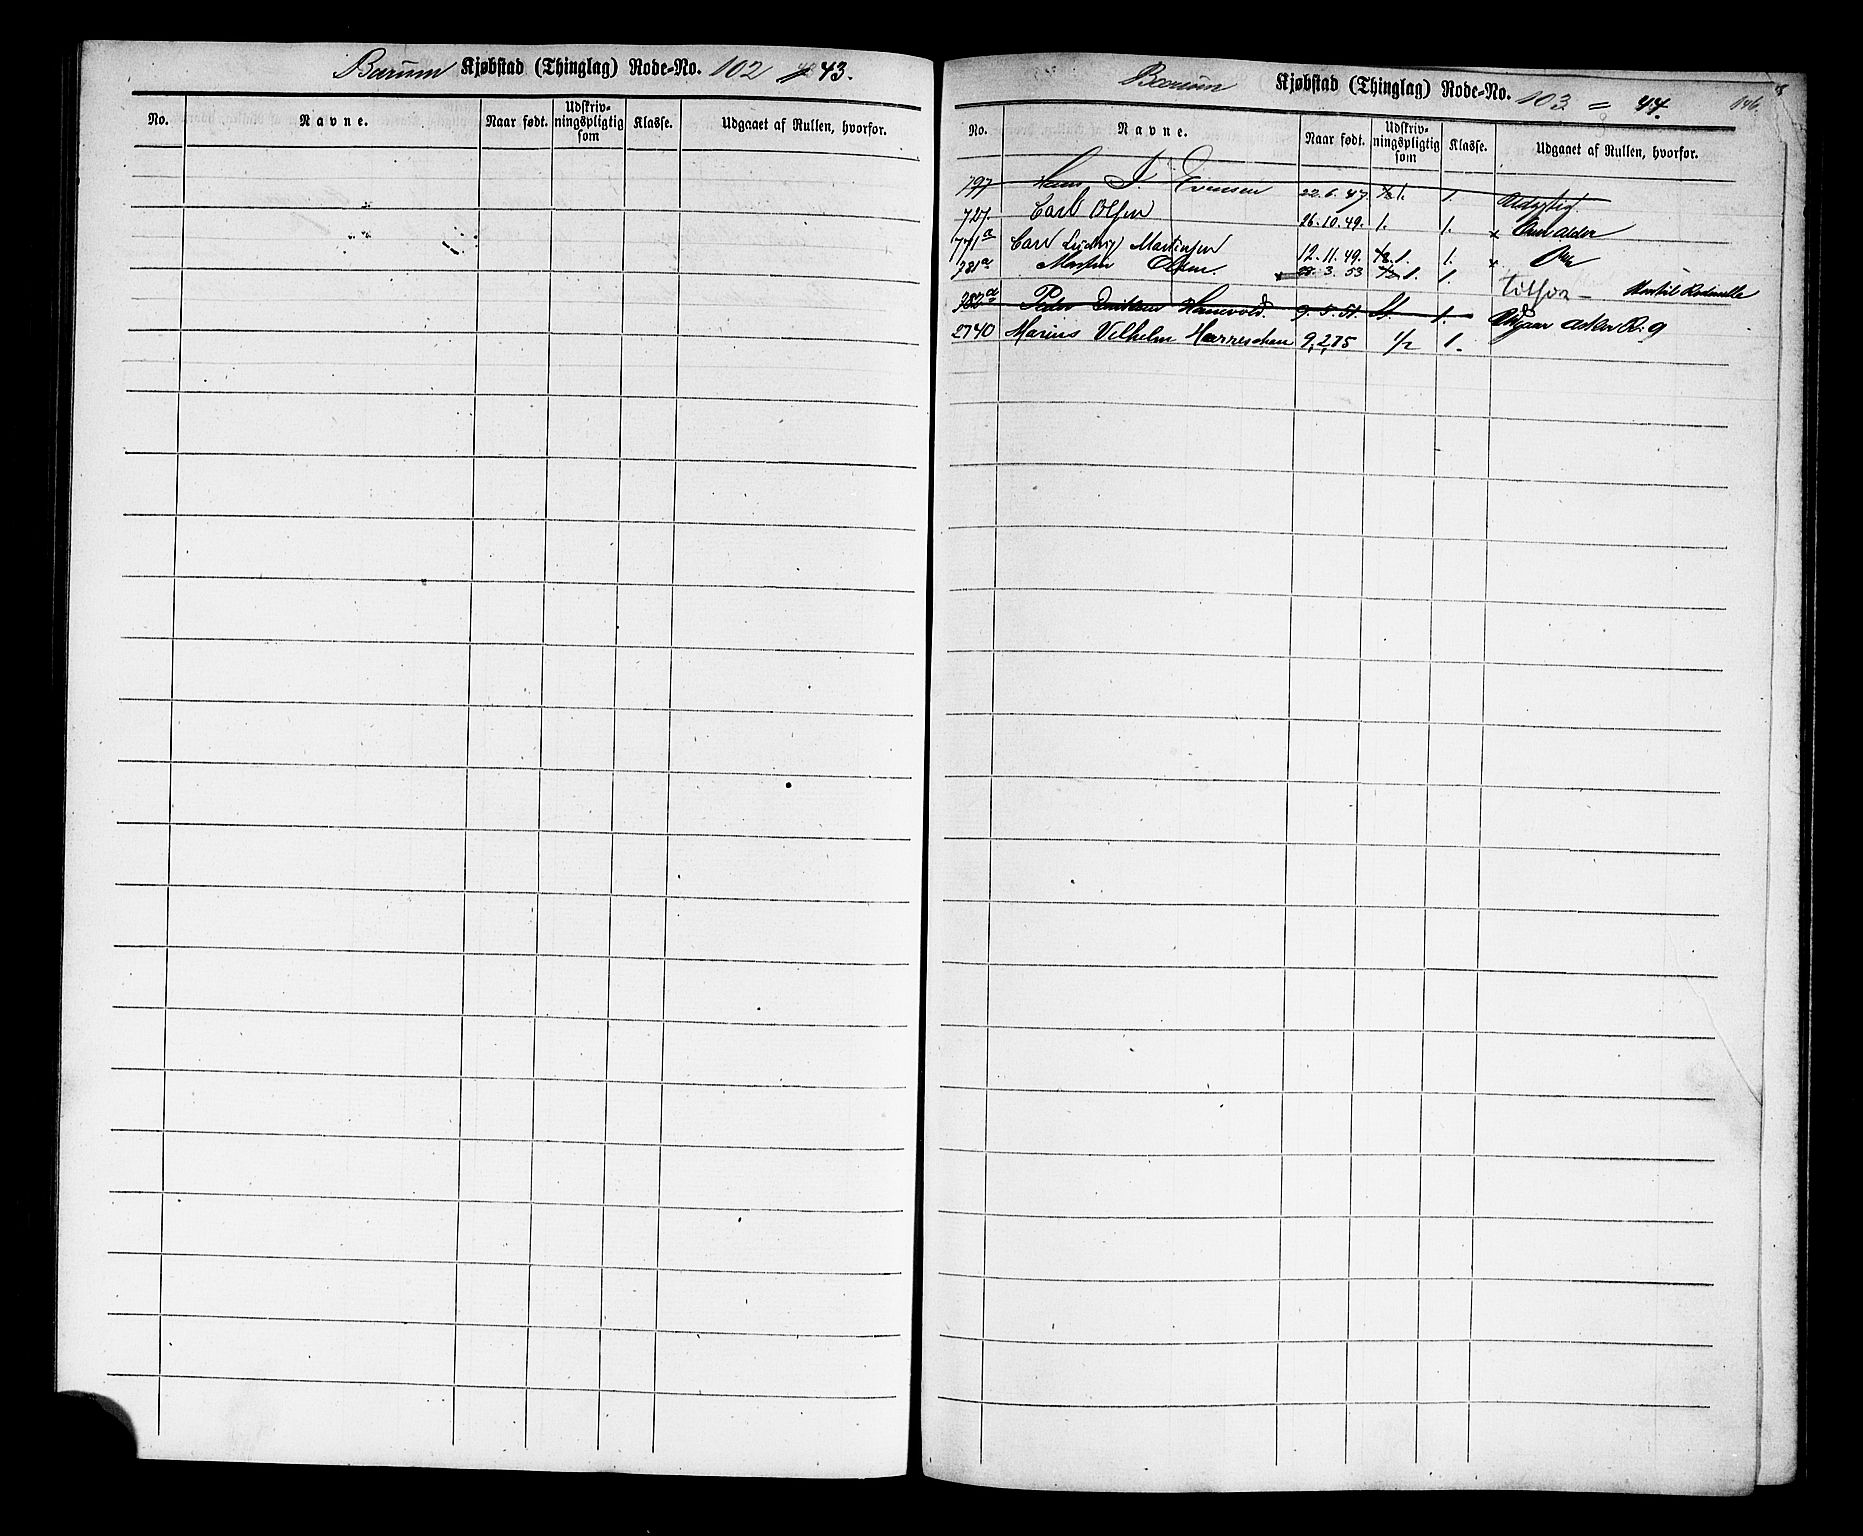 Bærum Kjøbstad (Thinglag) Rode-No. 102 43.
No. Navne. Naar født. Udskriv-ningspligtig som Klasse. Udgaaet af Rullen, hvorfor.
Bærum Kjøbstad (Thinglag) Rode-No. 103 = 44. 146.
No. Navne. Naar født. Udskriv-ningspligtig som Klasse. Udgaaet af Rullen, hvorfor.
797 Hans J. Evensen 22.6.47. 1. Udygtig.
727 Carl Olsen 26.10.49. 1. 1. x Overalder
771a Carl Ludvig Martinsen 12.11.49. 1. 1. x
781a Martin Olsen 3. 53 1. 1.
782a Peder Hanevold. 9.5.51. 1. Asker R. 9
2740 Marius Vilhelm 9,2,75 1/2 1.